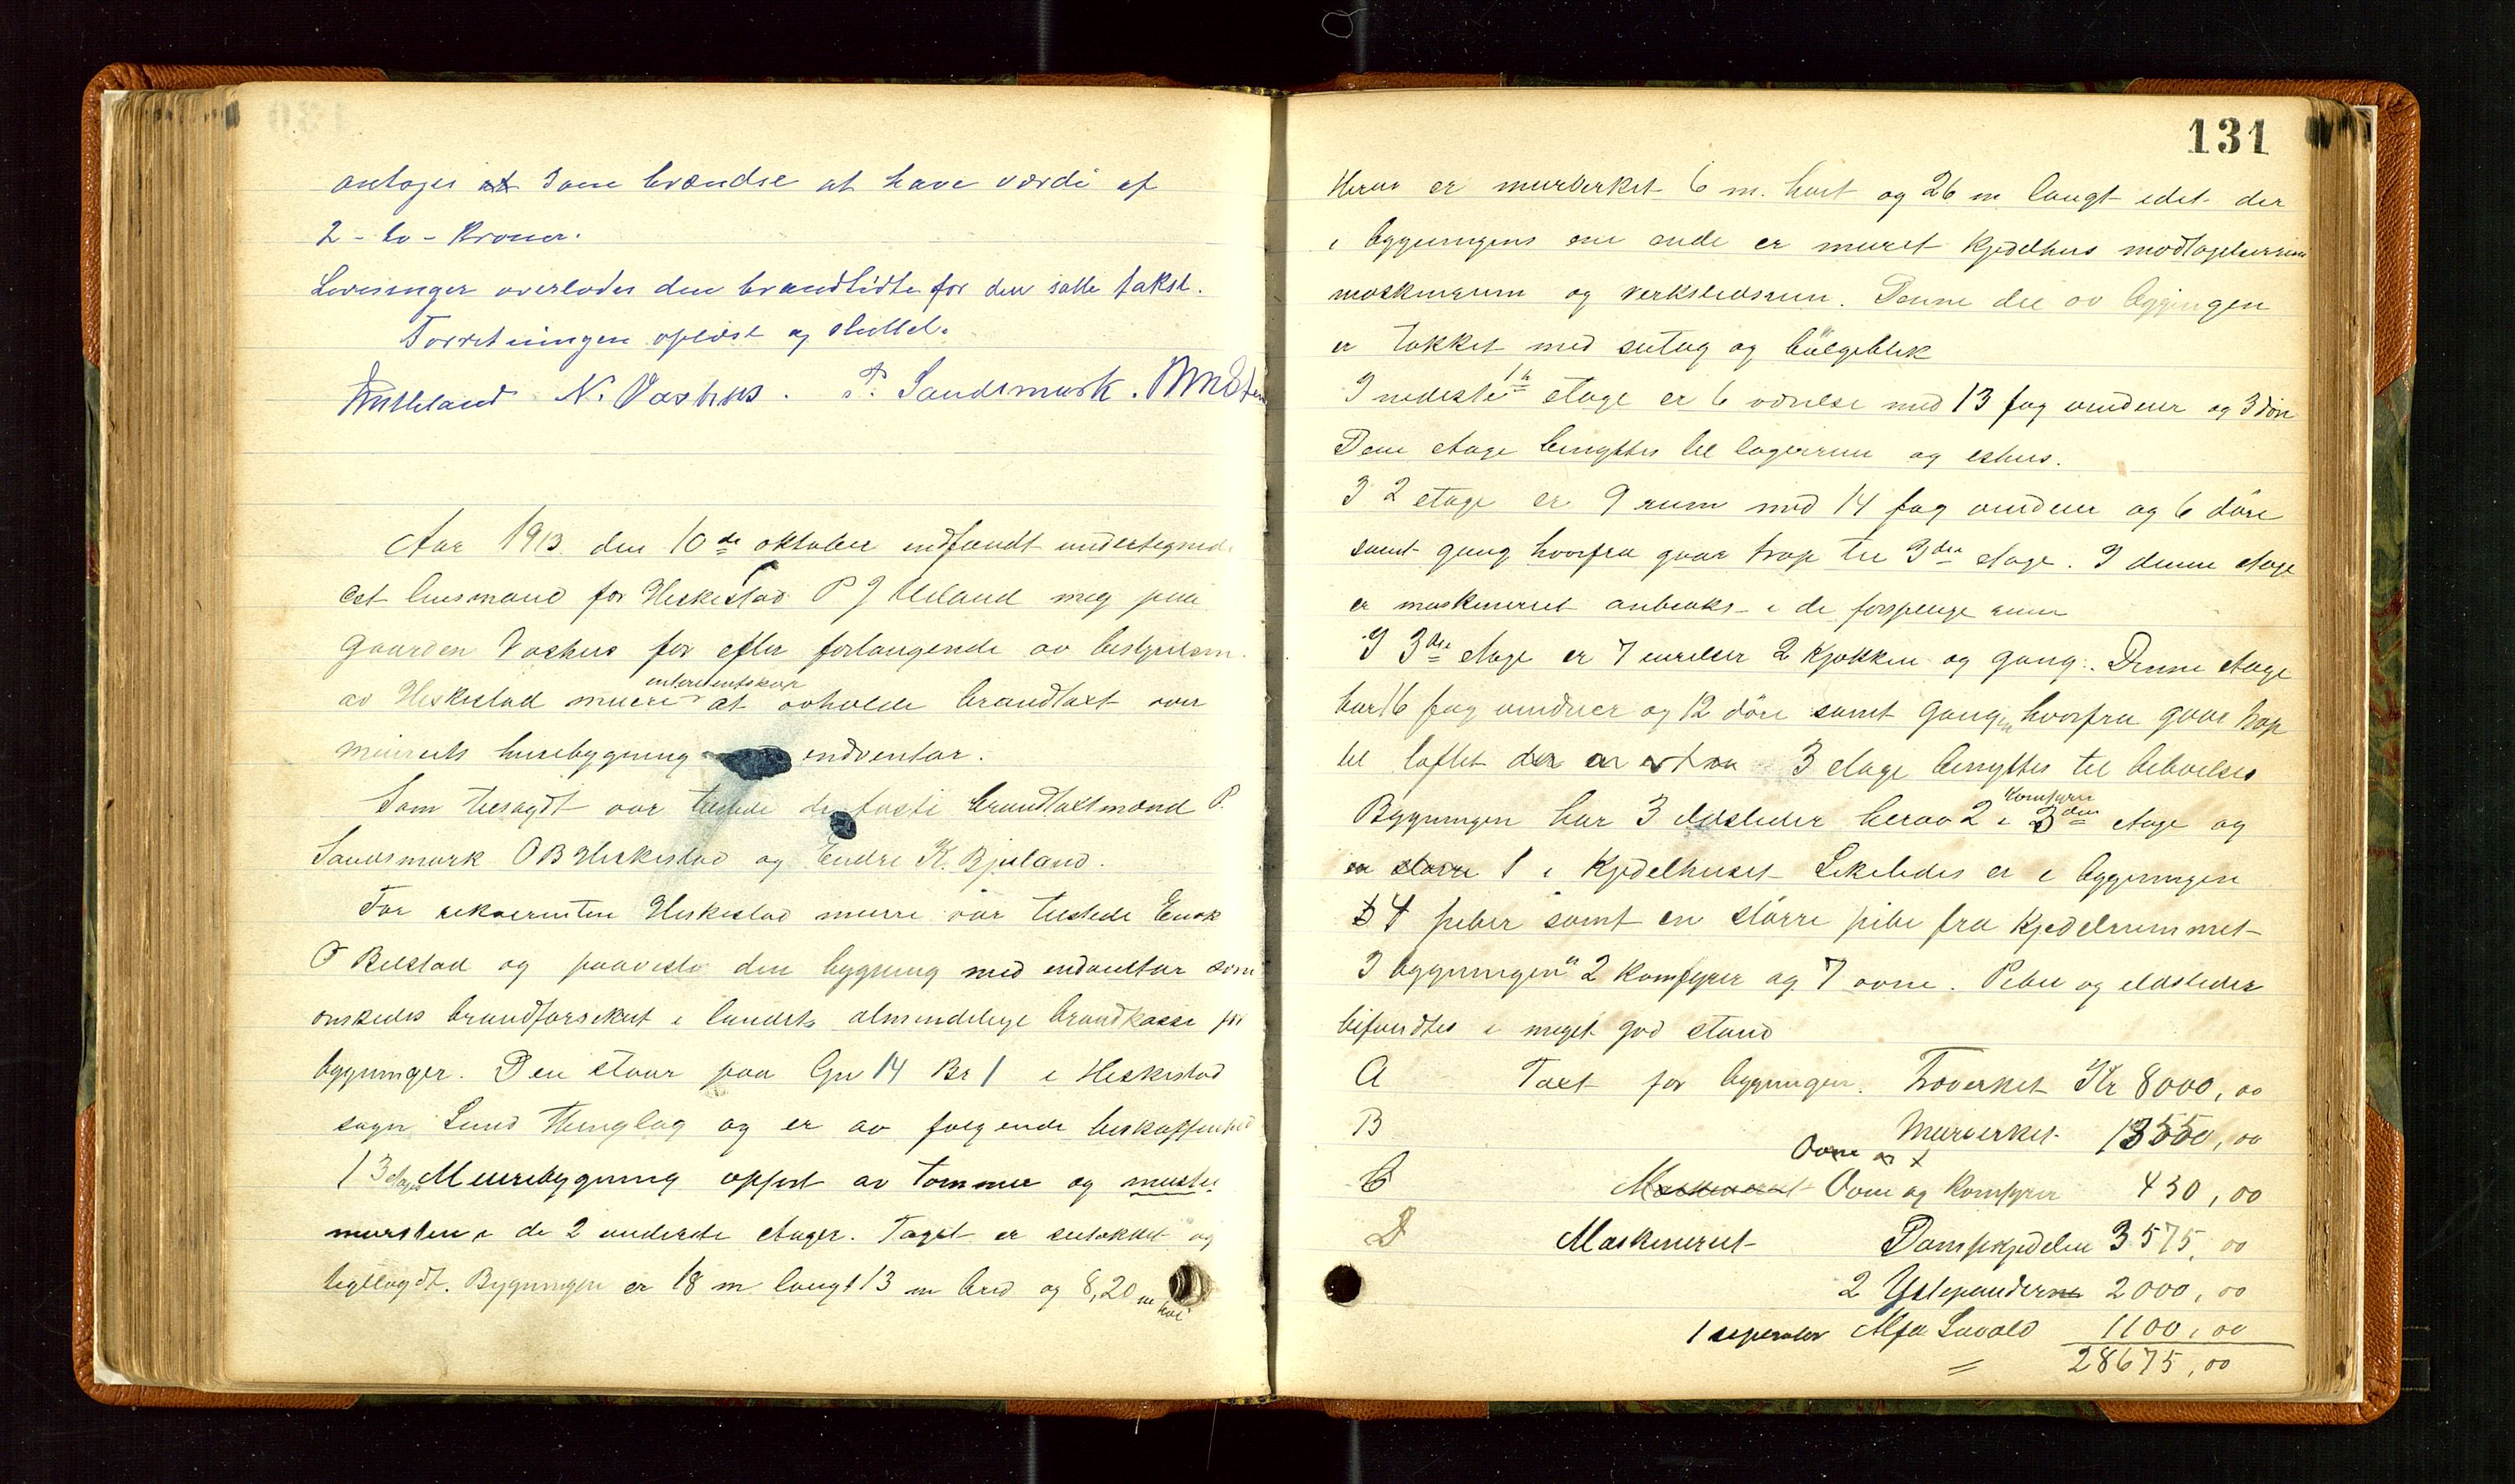 antages at dom brændse at have værdi af
2 - to - Kroner.
Levninger overlodes den brandlidte for den satte takst.
Forretningen oplæst og sluttet.
N. Vashus. P. Sandsmark.
Aar 1913 den 10de oktober indfandt undertegnede
Est lensmand for Heskestad P J Ueland mig paa
gaarden Vashus for efter forlangende av bestyrelsen
av Heskestad meieri interesentskap at avholde brandtakst over
meieriets husebygning indventar.
Som tilsagdt var tilstede de faste brandtakstmænd P.
Sandsmark O B Heskestad og Endre K. Bjuland.
For rekvirenten Heskestad meieri var tilstede Enok
O Bilstad og paaviste den bygning med indventar som
ønskedes brandforsikret i landets almindelige brandkasse for
bygninger. Den staar paa Gn 14 Br 1 i Heskestad
sogn Lund thinglag og er av følgende beskaffenhed
1 3 etages Meieribygning opført av tømmer og
mursten i de 2 underste etager. Taget er sutakket og
heglagdt. Bygningen er 18 m langt 13 m bred og 8,20 m høi
131
Herav er murverket 6 m. høit og 26 m langt idet der
i bygningens ene ende er muret kjedelhus modtagelserum
maskinrum og verkstedsrum. Denne del av bygingen
er takket med sutag og bølgeblik
I nederste 1ste etage er 6 værelse med 13 fag vinduer og 3 døre
Dene etage benyttes til lagerrum og ishus.
I 2 etage er 9 rum med 14 fag vinduer og 6 døre
samt gang hvorfra gaar trap til 3die etage. I denne etage
er maskineriet anbrakt i de forskjellige rum
I 3die etage er 7 værelser 2 kjøkken og gang. Denne etage
har 16 fag vinduer og 12 døre samt gangen hvorfra gaar trap
til loftet 3 etage benyttes til beboelse
Bygningen har 3 ildsteder herav 2 komfyrer i 3die etage og
1 i Kjedelhuset Likeledes er i bygningen
4 piber samt en större pibe fra kjedelrummet
I bygningen 2 komfyrer og 7 ovne. Piber og ildsteder
befandtes i meget god stand
A Taxt for bygningen. Træverket Kr 8000,00
B Murverket 13550,00
C Ovne og komfyrer 450,00
D Maskineriet Dampkjedelen 3575,00
2 Ystepanderne 2000,00
1 seperator Alfa Lavald 1100,00
= 28675,00